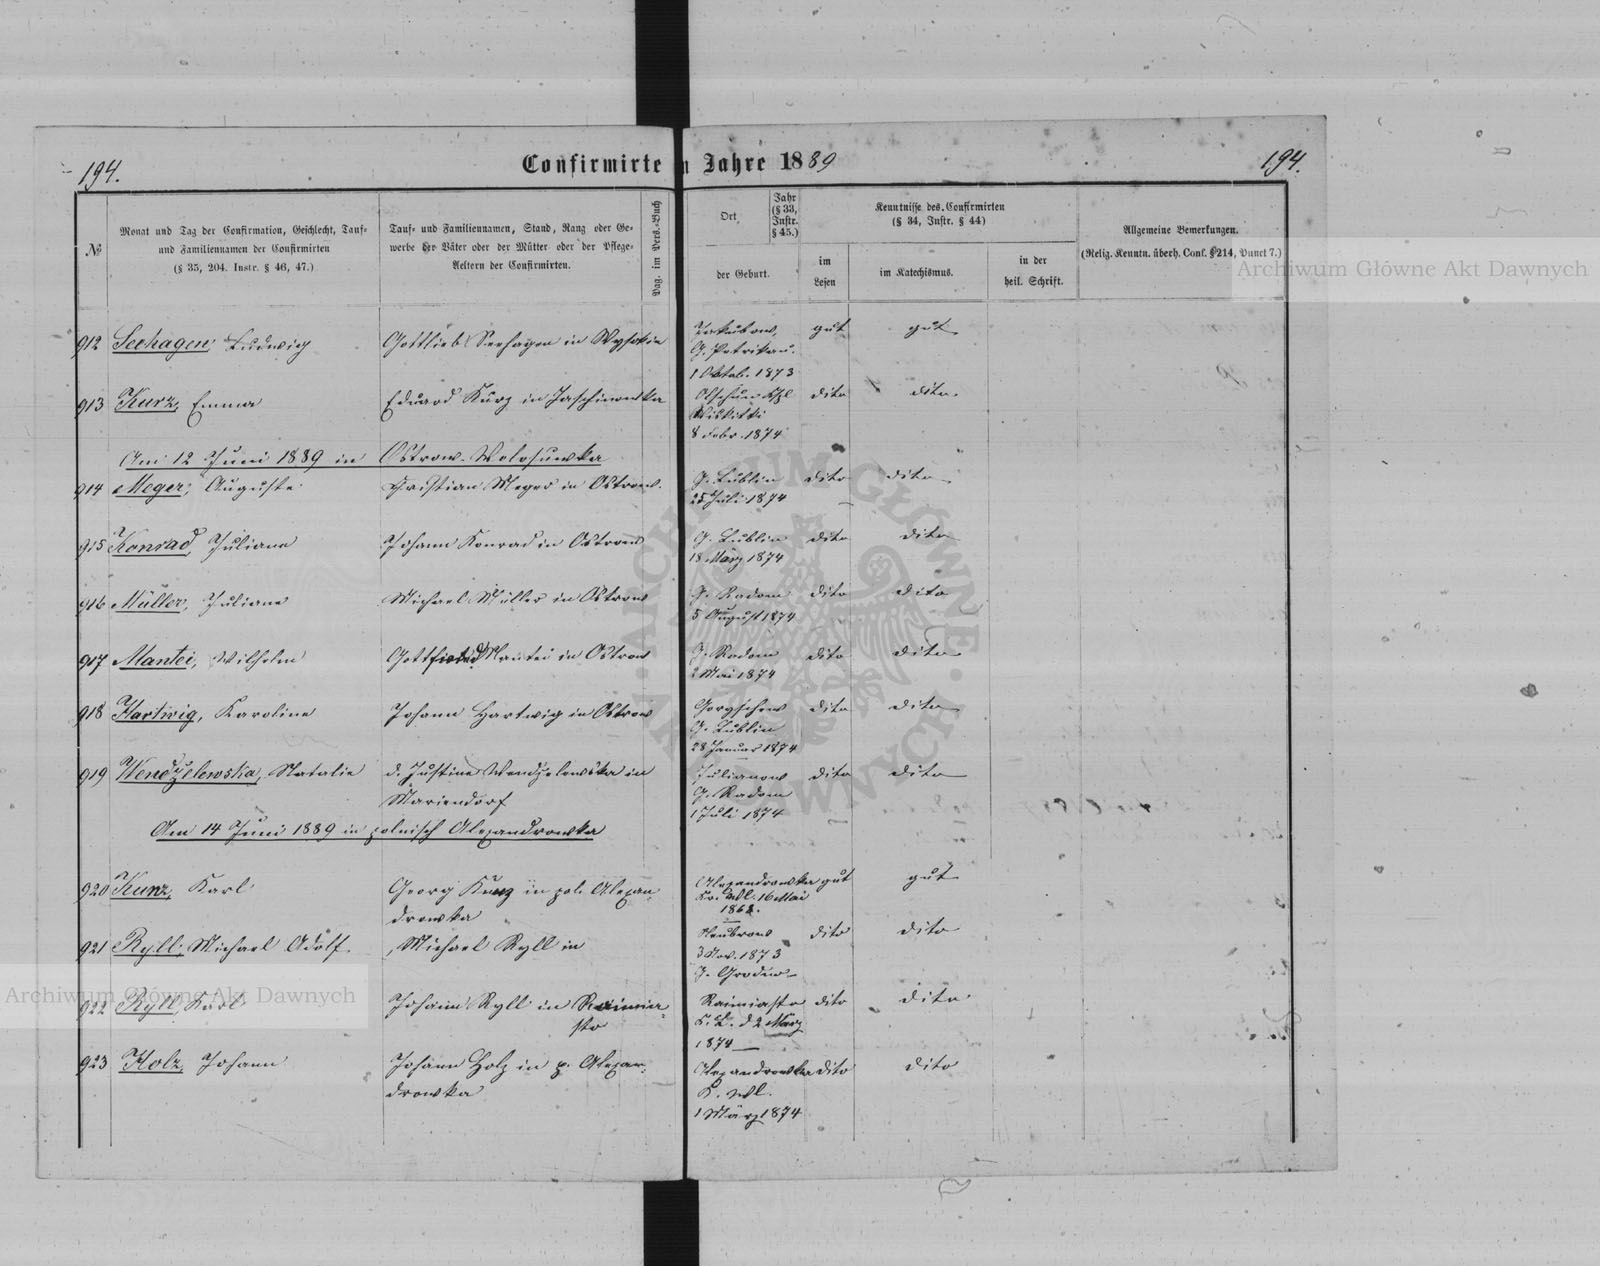 194.
Confirmirte
n Jahre 1889
194.
№
Monat und Tag der Confirmation, Geschlecht, Tauf-
und Familiennamen der Confirmirten
(§ 35, 204. Instr. § 46, 47.)
Tauf- und Familiennamen, Stand, Rang oder Ge-
werbe der Väter oder der Mütter oder der Pflege-
Aeltern der Confirmirten.
Pag. im Pers.-Buch
Ort
Jahr
(§ 33,
Instr.
§ 45.)
der Geburt.
Kenntnisse des Confirmirten
(§ 34, Instr. § 44)
im
Lesen
im Katechismus.
in der
heil. Schrift.
Allgemeine Bemerkungen.
(Relig. Kenntn. überh. Conf. § 214, Punct 7.)
912 Seehagen, Ludwig
Gottlieb Seehagen in
gut gut
G. Petrikau.
1 Octob. 1873
913 Kurz, Emma
Eduard Kurz in Jaschinowka
dito dito
Wiskitki
8 Febr. 1874
Am 12 Juni 1889 in Ostrow-Wolosuwka
914 Meger, Auguste
Christian Meger in Ostrow.
G. Lublin dito dito
25 Juli 1874
915 Konrad, Juliana
Johann Konrad in Ostrow
G. Lublin dito dito
18 März 1874
916 Müller, Juliane
Michael Müller in Ostrow
G. Radom dito dito
5 August 1874
917 Mantei, Wilhelm
Gottfried Mantei in Ostrow
G. Radom dito dito
2 Mai 1874
918 Hartwig, Karoline
Johann Hartwig in Ostrow
dito dito
G. Lublin
28 Januar 1874
919 Wendzelewska, Natalie
d. Justine Wendzelewska in
Mariendorf
Julianow dito dito
G. Radom
1 Juli 1874
Am 14 Juni 1889 in polnisch Alexandrowka
920 Kunz, Karl
Georg Kunz in pol. Alexan-
drowka
Alexandrowka gut gut
16 Mai
921 Ryll, Michael Adolf.
Michael Ryll in
dito dito
3 Nov. 1873
G. Grodno
922 Ryll, Karl
Johann Ryll in Raimia-
sto
Raimiasto dito dito
d 2 März
1874
923 Holz, Johann
Johann Holz in p. Alexan-
drowka
Alexandrowka dito dito
K. Wl.
1 März 1874
Archiwum Główne Akt Dawnych
Archiwum Główne Akt Dawnych
ARCHIWUM GŁÓWNE AKT DAWNYCH